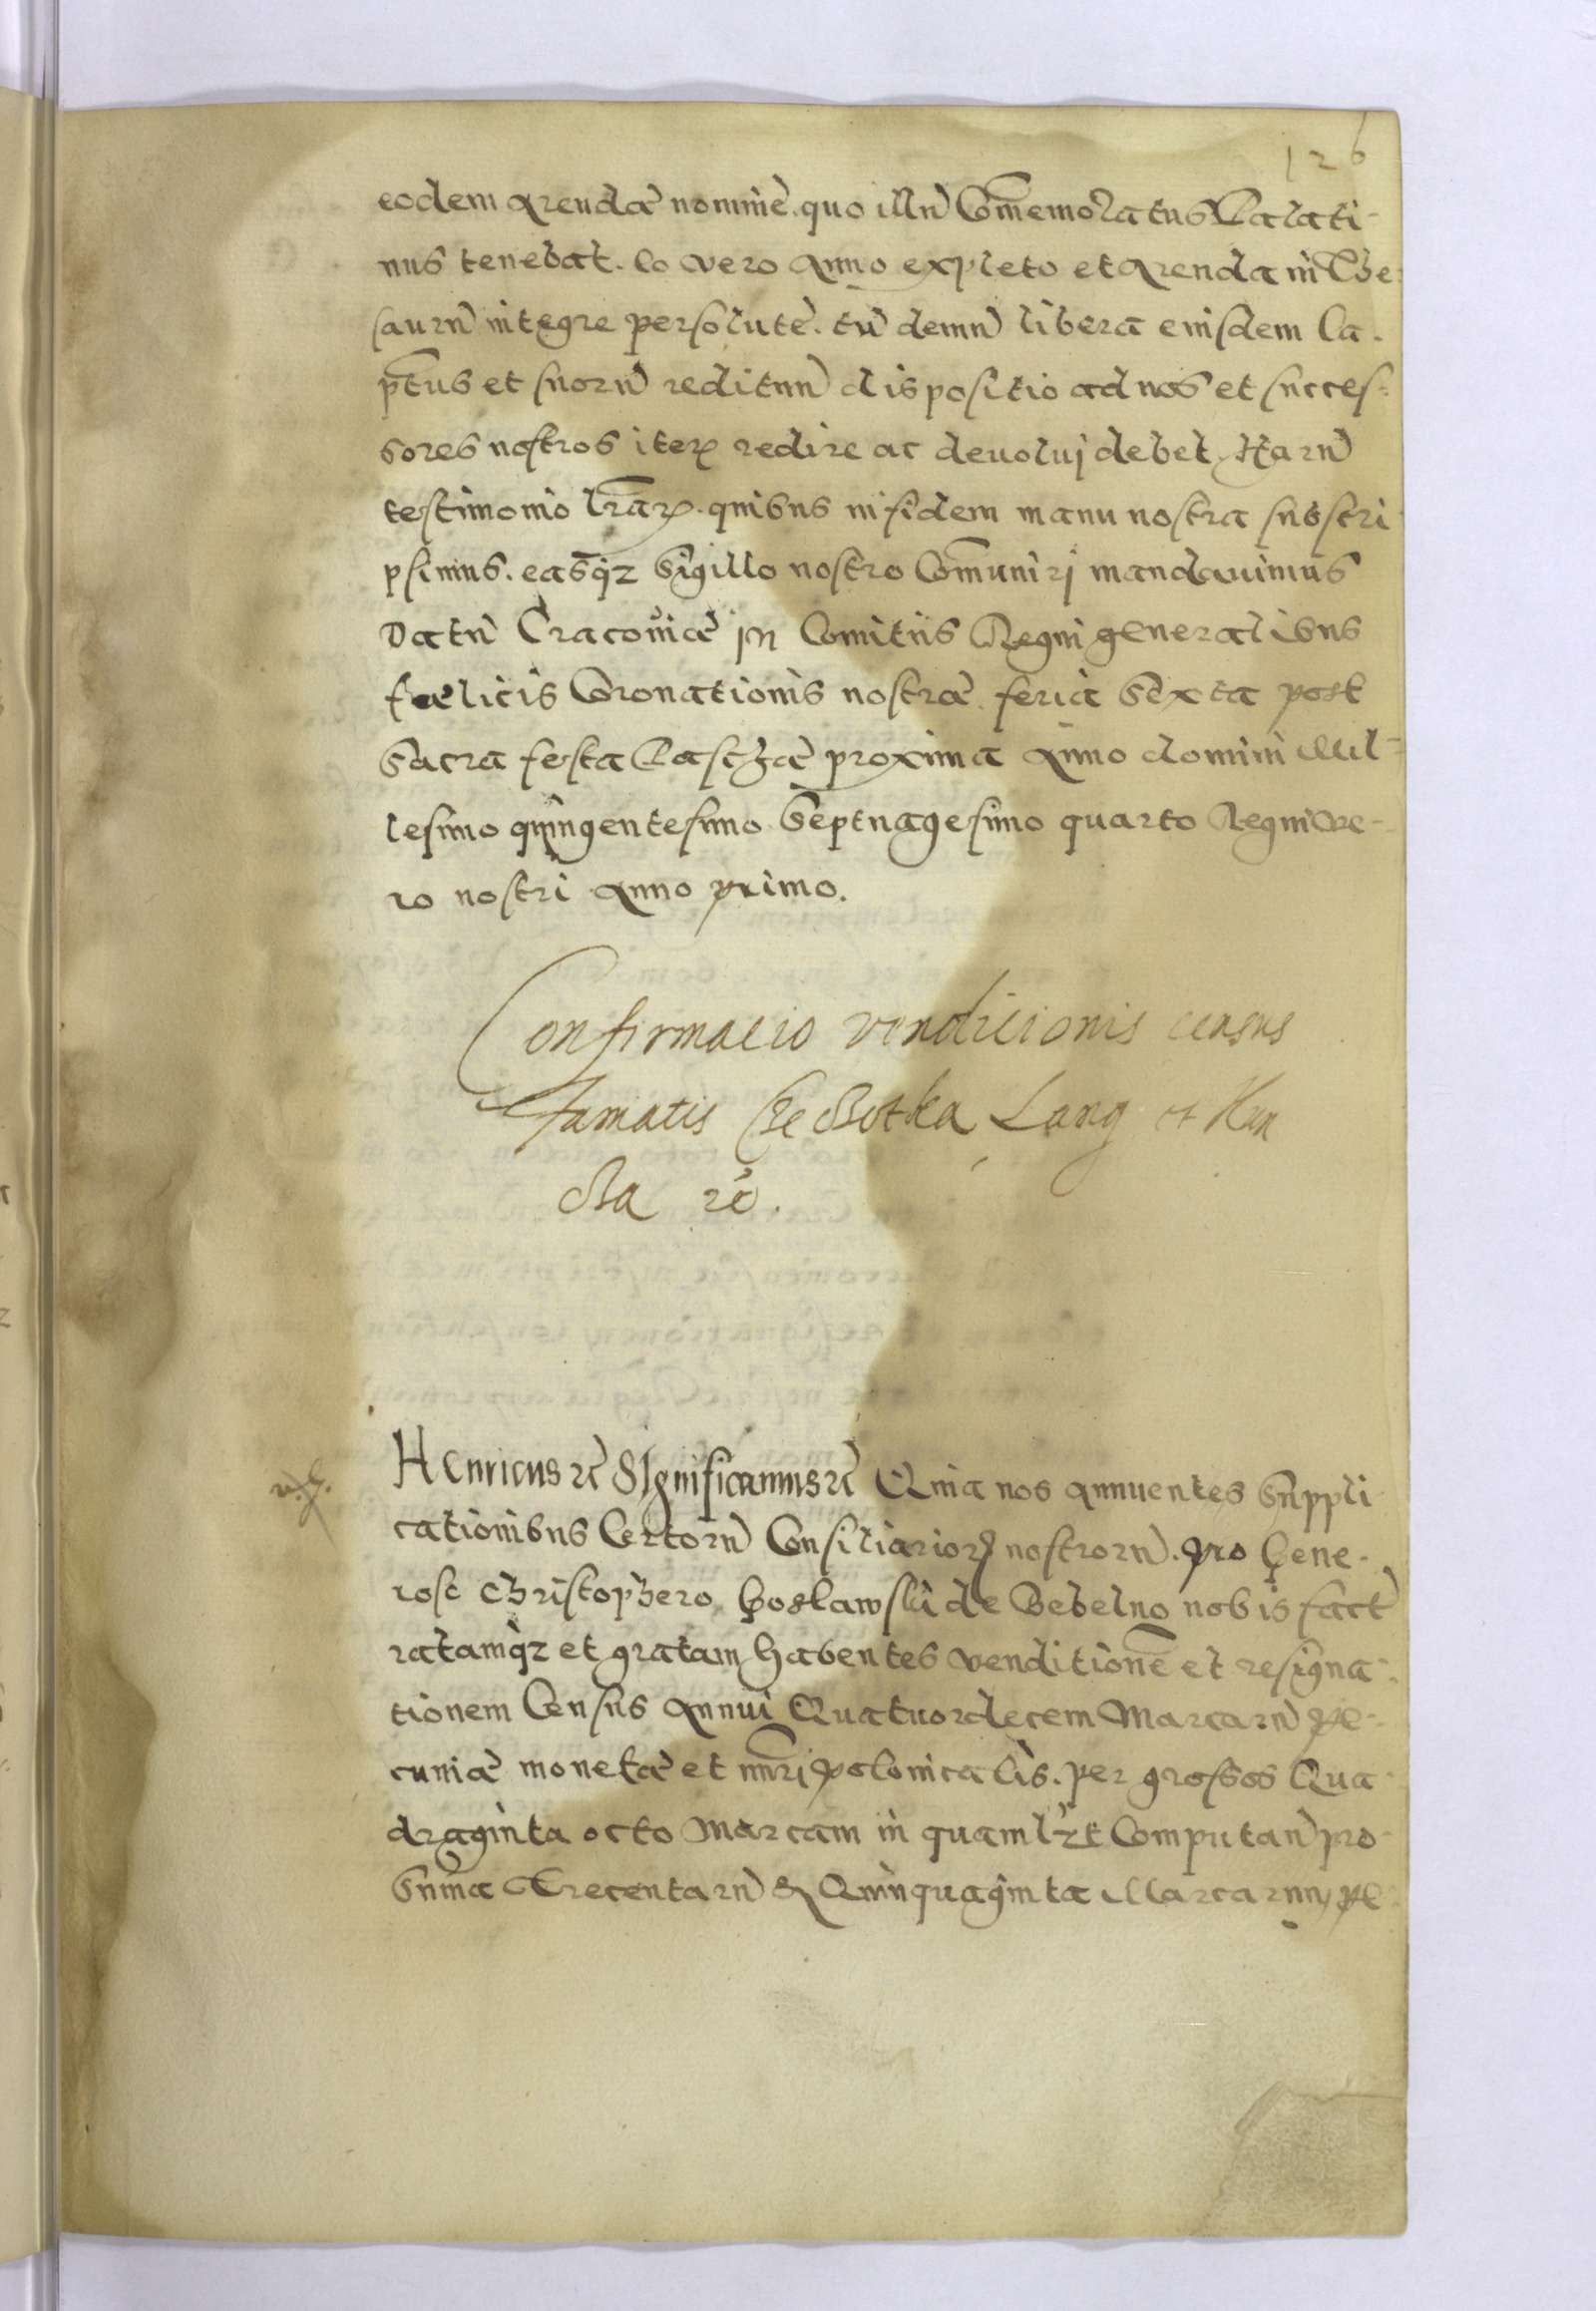 126
eodem Arendæ nomine quo illũ Commemoratus Palati-
nus tenebat. Eo vero Anno expleto et Arenda in The-
saurũ integre persolute. tũ demũ libera eiusdem Ca-
pt̃us et suorũ redituũ dispositio ad nos et succes-
sores nostros iterũ redire ac deuolui debet. Harũ
testimonio lr̃arũ. quibus in fidem manu nostra subscri
psimus. easq̃z Sigillo nostro Com̃uniri mandauimus
Datũ Cracoviæ in Comitiis Regni generalibus
fælicis Coronationis nostræ feria Sexta post
Sacra festa Paschæ proxima Anno domini Mil-
lesimo quingentesimo Septuagesimo quarto Regni ve-
ro nostri Anno primo.
Confirmacio vendicionis census
Famatis Lang et
Henricus rc̃ Significamus rc̃ Quia nos Annuentes Suppli
cationibus Certorũ Consiliariorũ nostrorũ. pro Gene-
rose Christophero Goslawski de Bebelno nobis fact̃
ratamq̃z et gratam habentes venditionẽ et resigna-
tionem Census Annui Quatuordecem Marcarũ pe-
cuniæ monetæ et nũri polonicalis. per grossos Qua
draginta octo Marcam in quaml̃zt Computan̄ pro
Sum̃a Trecentarũ & Quinquaginta Marcarum pe